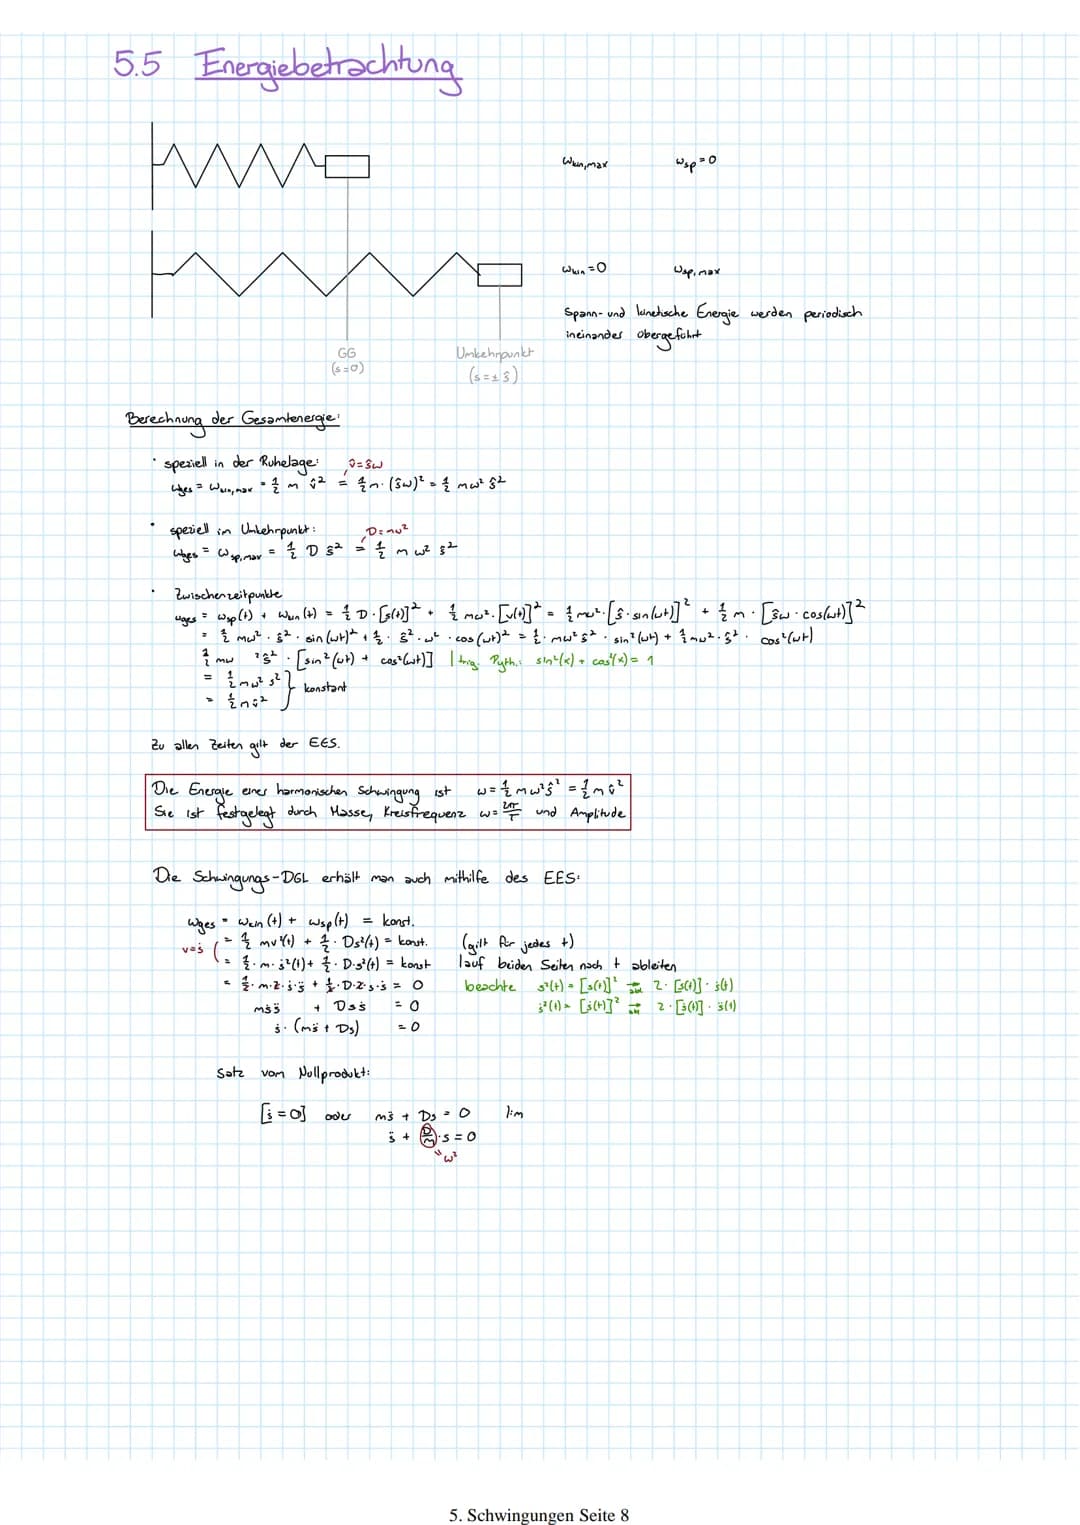 5.5 Energiebetrachtung
Wkin,max Wsp = 0
Wkin = 0 Wsp,max
Spann- und kinetische Energie werden periodisch
ineinander übergeführt
GG
(s=0)
Umkehrpunkt
(s = ± ŝ)
Berechnung der Gesamtenergie:
• speziell in der Ruhelage: v̂ = ŝω
Wges = Wkin,max = 1/2 m v̂² = 1/2 m · (ŝω)² = 1/2 mω² ŝ²
• speziell im Umkehrpunkt: D = mω²
Wges = Wsp,max = 1/2 D ŝ² = 1/2 m ω² ŝ²
• Zwischenzeitpunkte
Wges = Wsp(t) + Wkin(t) = 1/2 D · [s(t)]² + 1/2 mω² · [v(t)]² = 1/2 mω² · [ŝ · sin(ωt)]² + 1/2 m · [ŝω · cos(ωt)]²
= 1/2 mω² · ŝ² · sin(ωt)² + 1/2 · ŝ² · ω² · cos(ωt)² = 1/2 · mω² ŝ² · sin²(ωt) + 1/2 mω² · ŝ² · cos²(ωt)
1/2 mω ²ŝ² · [sin²(ωt) + cos²(ωt)] | trig. Pyth.: sin²(x) + cos²(x) = 1
= 1/2 mω² ŝ² } konstant
= 1/2 m v̂²
Zu allen Zeiten gilt der EES.
Die Energie einer harmonischen Schwingung ist W = 1/2 mω² ŝ² = 1/2 m v̂²
Sie ist festgelegt durch Masse, Kreisfrequenz ω = 2π/T und Amplitude
Die Schwingungs-DGL erhält man auch mithilfe des EES:
Wges = Wkin(t) + Wsp(t) = konst.
= 1/2 mv²(t) + 1/2 · Ds²(t) = konst. (gilt für jedes t)
v=ṡ ( = 1/2 · m · ṡ²(t) + 1/2 · D · s²(t) = konst lauf beiden Seiten nach t ableiten
= 1/2 · m · 2 · ṡ · s̈ + 1/2 · D · 2 · s · ṡ = 0 beachte s²(t) = [s(t)]² ⇒ 2 · [s(t)] · ṡ(t)
mṡs̈ + Dsṡ = 0 ṡ²(t) = [ṡ(t)]² ⇒ 2 · [ṡ(t)] · s̈(t)
ṡ · (ms̈ + Ds) = 0
Satz vom Nullprodukt:
[ṡ = 0] oder ms̈ + Ds = 0 |:m
s̈ + D/m · s = 0
= ω²
5. Schwingungen Seite 8